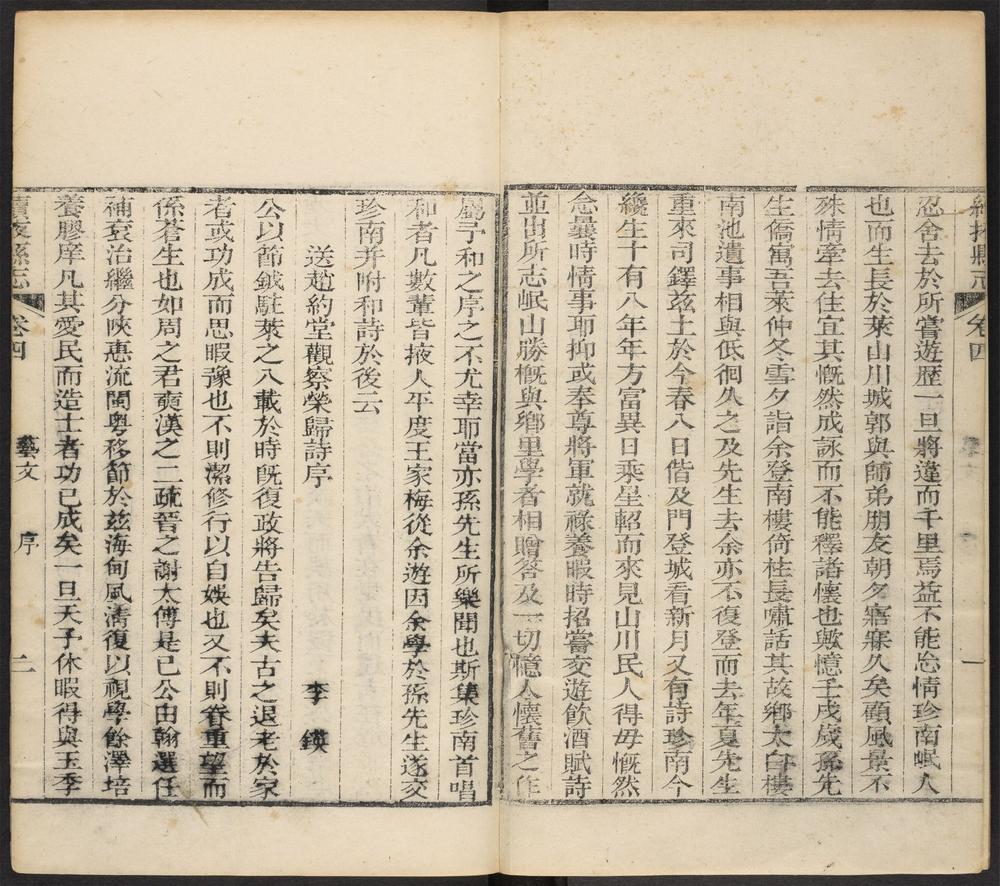 續掖縣志 卷四 一
忍舍去於所嘗遊歷一旦將違而千里焉益不能忘情珍南岷人
也而生長於萊山川城郭與師弟朋友朝夕寤寐久矣碩風景不
殊情牽去住宜其慨然成詠而不能釋諸懷也歟憶壬戌歲孫先
生僑寓吾萊仲冬雪夕詣余登南樓倚柱長嘯話其故鄉太白樓
南池遺事相與低徊久之及先生去余亦不復登而去年夏先生
重來司鐸茲土於今春八日偕及門登城看新月又有詩珍南今
纔生十有八年年方富異日乘星軺而來見山川民人得毋慨然
念曩時情事耶抑或奉尊將軍就祿養暇時招嘗交遊飲酒賦詩
並出所志岷山勝概與鄉里學者相贈答及一切憶人懷舊之作
屬予和之序之不尤幸耶當亦孫先生所樂聞也斯集珍南首唱
和者凡數輩皆掖人平度王家梅從余遊因余學於孫先生遂交
珍南并附和詩於後云
送趙約堂觀察榮歸詩序
李鍈
公以節鉞駐萊之八載於時旣復政將告歸矣夫古之退老於家
者或功成而思暇豫也不則潔修行以自娛也又不則眷重望而
係蒼生也如周之君奭漢之二疏晉之謝太傅是已公由翰選任
補袞治繼分陝惠流閩粤移節於茲海甸風清復以視學餘澤培
養膠庠凡其愛民而造士者功已成矣一旦天子休暇得與玉季
續掖縣志 卷四 藝文 序 二